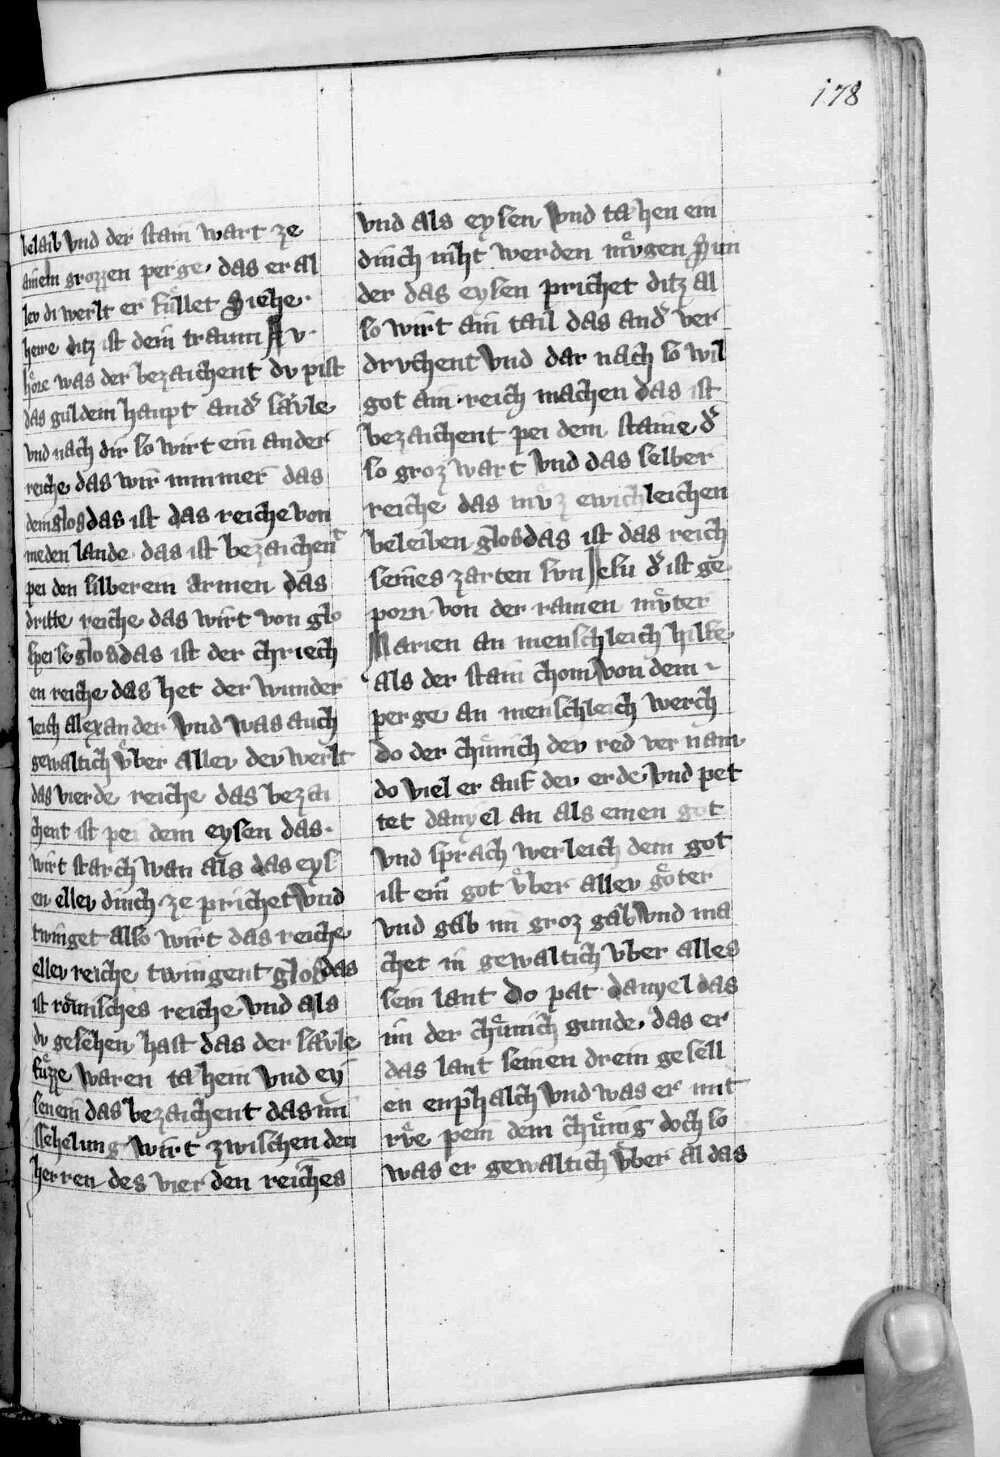 178
belaib vnd der stain wart ze
ainem grozzen perge. das er al
lev di werlt er fuͤllet Siehe.
herre ditz ist dein traum Nv.
hoͤre was der bezaichent dv pist
das guldein haupt and͛ saͤvle
vnd nach dir so wirt ein ander
reiche das wir minner das
denn glos das ist das reiche von
meden lande. das ist bezaichent
pei den silberein armen das
dritte reiche das wirt von glo
speise glos das ist der chriech
en reiche das het der wunder
leich alexander vnd was auch
gewaltich vͤber aller der werlt
das vierde reiche das bezai
chent ist pei dem eysen das.
wirt starch wan als das eys
en ellev dinch ze prichet vnd
twinget also wirt das reiche
ellev reiche twingent glos das
ist roͤmisches reiche vnd als
dv gesehen hast das der saͤvle
fuͤzze waren tahein vnd ey
senein das bezaichent das mi
sshelung wirt zwischen den
herren des vierden reiches
vnd als eysen vnd tahen ein
dinch niht werden mvͤgen Sun
der das eysen prichet ditz al
so wirt ain tail das and͛ ver
drvchent vnd dar nach so wil
got ain reich machen das ist
bezaichent pei dem staine d͛
so groz wart vnd das selber
reiche das mvͤz ewichleichen
beleiben glos das ist das reich
seines zarten svn Jesu d͛ ist ge
porn von der rainen mvͤter
Marien an menschleich hilfe
als der stain chom von dem
perge an menschleich werch
do der chuͤnich dev red vernam
do viel er auf dev erde vnd pet
tet danyel an als einen got
vnd sprach werleich dem got
ist ein got vͤber aller goͤter
vnd gab im groz gab vnd ma
chet in gewaltich vber alles
sein lant Do pat danyel das
im der chuͤnich gunde. das er
das lant seinen drein gesell
en enphalch vnd was er mit
rvͤe pein dem chuͤnig doch so
was er gewaltich vͤber al das